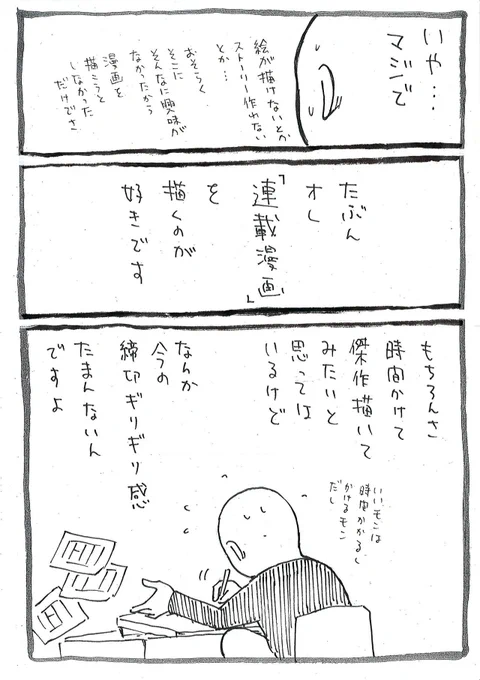 いや…
マジで
絵が描けないとか
ストーリー作れない
とか…
おそらく
そこに
そんなに興味が
なかったから
漫画を
描こうと
しなかった
だけでさ
たぶん
オレ
「連載漫画」
を
描くのが
好きです
もちろんさ
時間かけて
傑作描いて
みたいと
思っては
いるけど
いいモンは
時間かかるし
かけるモン
だし
なんか
今の
締切ギリギリ感
たまんないん
ですよ